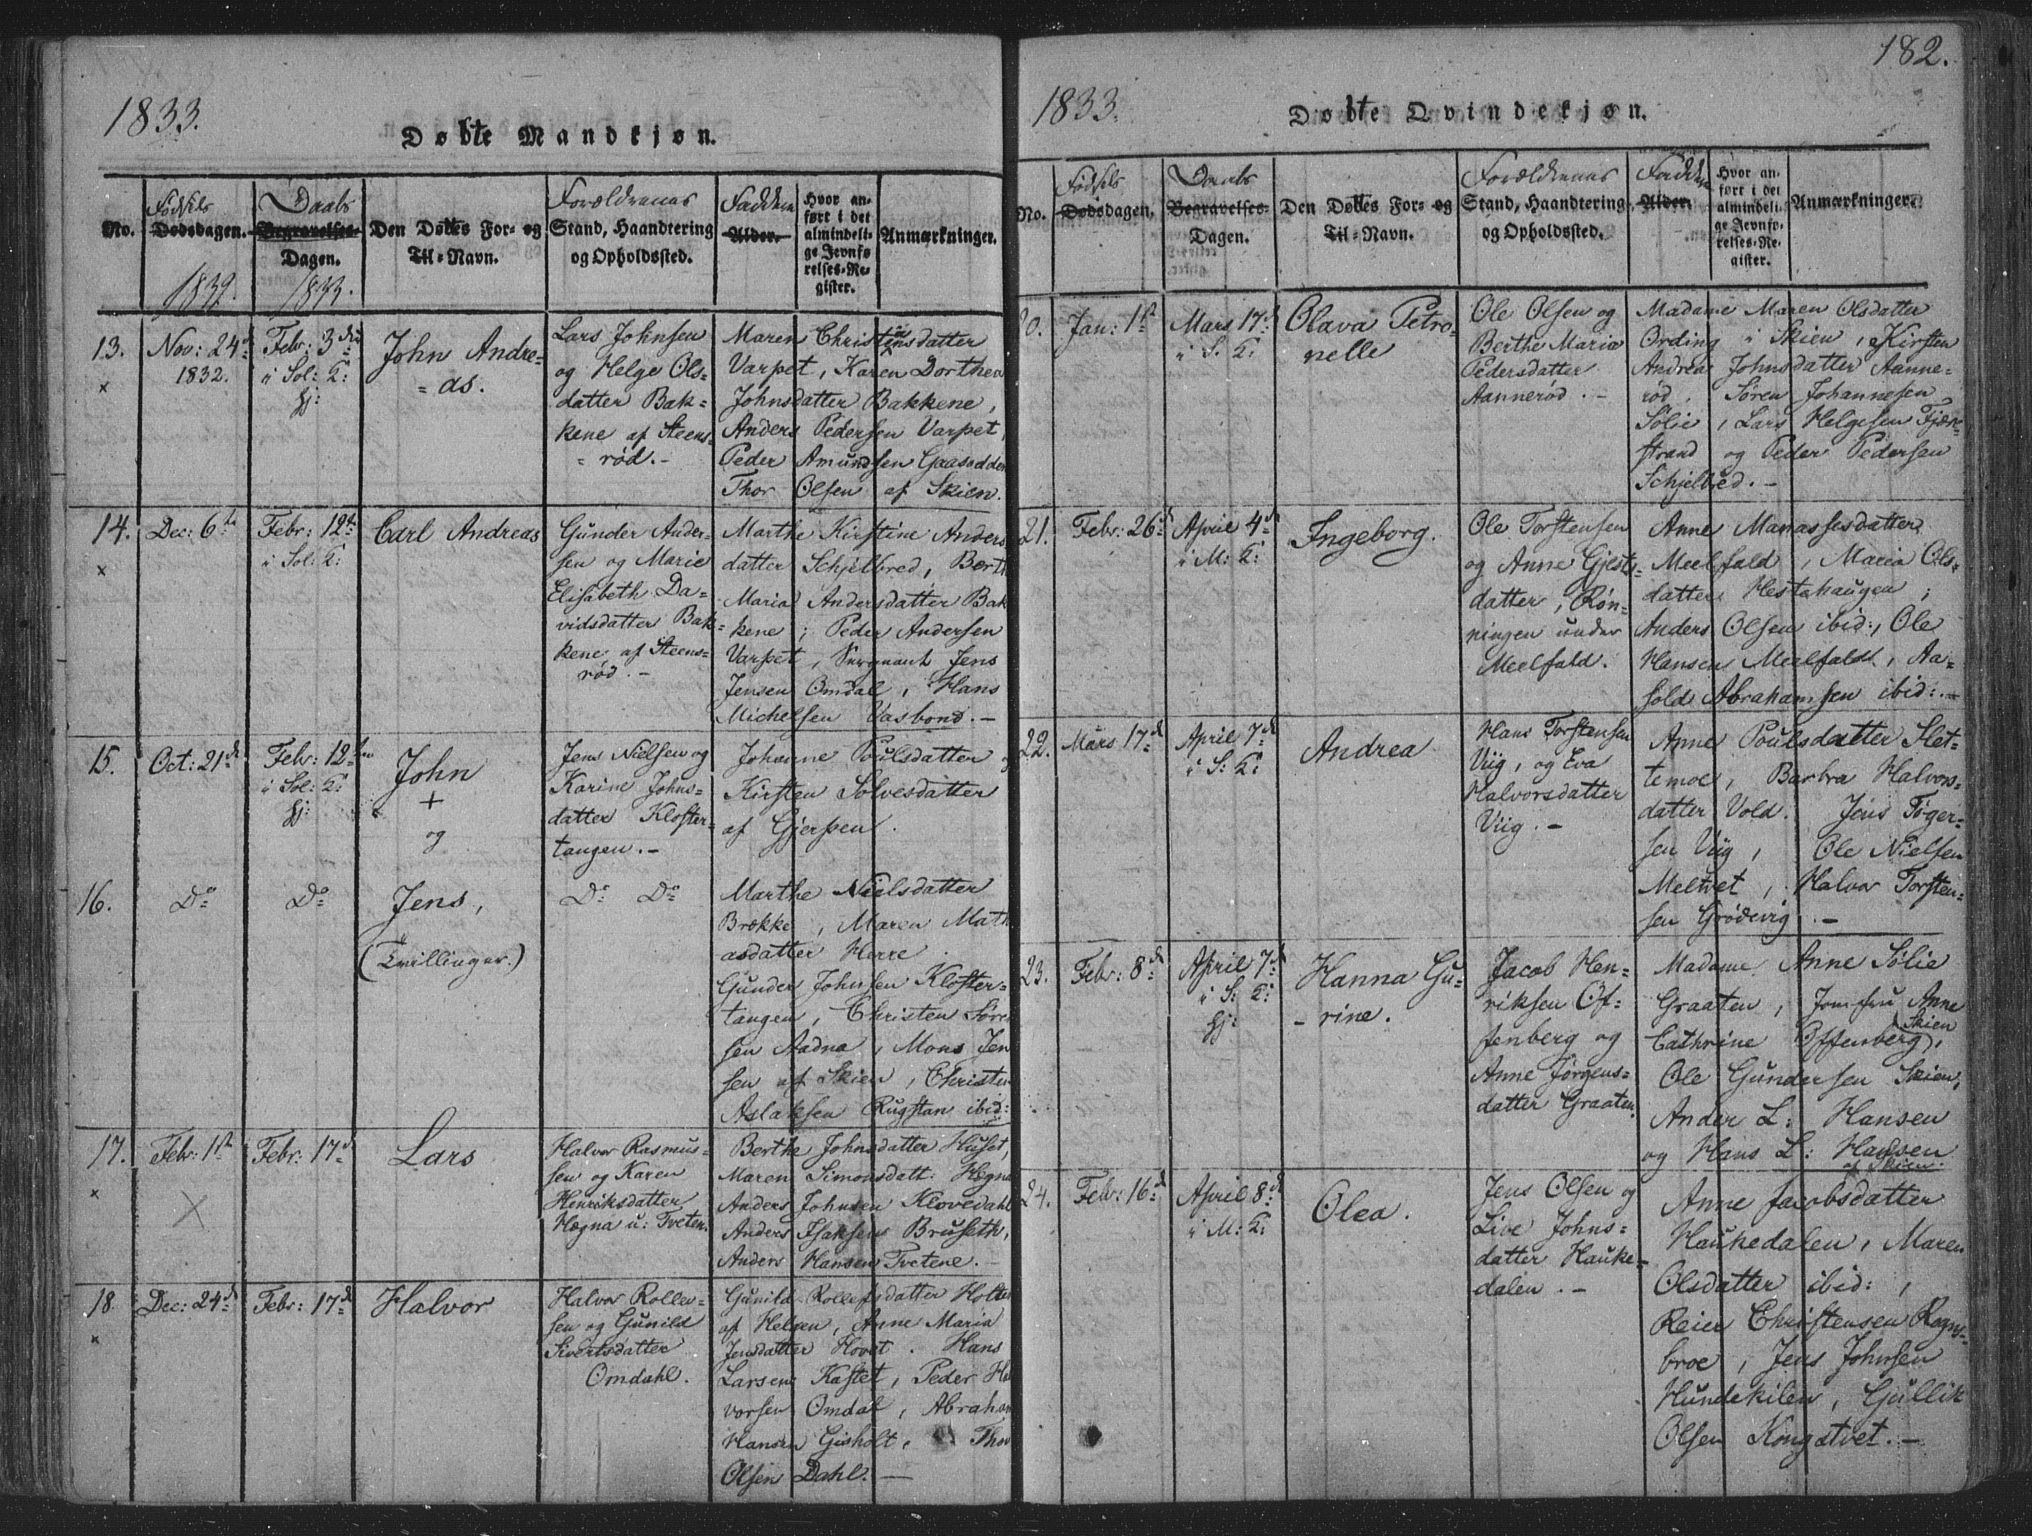 1833.
Døbte Mandkjøn.
No.
Fødsels
Dødsdagen.
1832.
Daabs
Begravelses-
Dagen.
1833.
Den Dødes For- og
Til-Navn.
Forældrenes
Stand, Haandtering
og Opholdssted.
Faddere
Alder.
Hvor an-
ført i det
almindeli-
ge Jevnfø-
relses-Re-
gister.
Anmærkninger.
13.
×
Nov: 24d
1832.
Febr: 3die
i Sol: K:
Hj:
John Andre-
= as.
Lars Johnsen
og Helge Ols-
datter Bak-
kene af Steens-
= rød. -
Maren Christensdatter
Varpet, Karen Dorthea
Johnsdatter Bakkene,
Anders Pedersen Varpet,
Peder Amundsen Gaasodden
Thor Olsen af Skien.
14.
×
Dec: 6te
Febr: 12te
i Sol: K:
Carl Andreas
Gunder Ander-
sen og Marie
Elisabeth Da-
vidsdatter Bak-
kene af Steens-
rød. -
Marthe Kirstine Anders
datter Schjelbred, Berth
Maria Andersdatter Bak
kene; Peder Andersen
Varpet, Sergeant Jens
Jensen Omdal, Hans
Michelsen Vasbond. -
15.
Oct: 21d
Febr: 12te
i Sol: K:
Hj:
John
+
og
Jens Nielsen og
Karine Johns-
datter Kloster-
tangen. -
Johanne Poulsdatter
Kirsten Solvesdatter
af Gjerpen.
16.
Do
Do
Jens,
(Tvillinger.)
Do Do
Marthe Nielsdatter
Brække, Maren Math
asdatter Herre
Gunder Johnsen Kloster-
tangen, Christen Søren
sen Aadna, Mons Jen
sen af Skien, Christen
Aslaksen Rugstan ibid:
17.
×
Febr: 1ste
×
Febr: 17d
Lars
Halvor Rasmus-
sen og Karen
Henriksdatter
Hægna u: Tveten.
Berthe Johnsdatter Huset,
Maren Simonsdatt: Hægna
Anders Johnsen Klovedahl
Anders Isaksen Bruseth,
Anders Hansen Tvetene. -
18.
×
Dec: 24d
Febr: 17d
Halvor
Halvor Rollev-
sen og Gunild
Sivertsdatter
Omdahl.
Gunild Rollefsdatter Holte
af Helgen, Anne Maria
Jensdatter Hovet. Hans
Larsen Kastet, Peder Hal
vorsen Omdal, Abraham
Hansen Gisholt, Thor
Olsen Dahl. -
182.
1833.
Døbte Qvindekjøn.
No.
Fødsels
Dødsdagen.
Daabs
Begravelses-
Dagen.
Den Dødes For- og
Til-Navn.
Forældrenes
Stand, Haandtering
og Opholdssted.
Faddere
Alder.
Hvor an-
ført i det
almindeli-
ge Jevnfø-
relses-Re-
gister.
Anmærkninger.
20.
Jan: 1ste
Mars 17d
i S: K:
Olava Petro-
nelle
Ole Olsen og
Berthe Maria
Pedersdatter
Aannerød. -
Madame Maren Olsdatter
Ording i Skien, Kirsten
Andrea Johnsdatter Aanne-
rød. Søren Johannesen
Sølie, Lars Helgesen Fjæn-
strand og Peder Pedersen
Schjelbred. -
21.
Febr: 26d
April 4d
i M: K:
Ingeborg.
Ole Torstensen
og Anne Gjests-
datter, Røn-
ningen under
Meelfald.
Anne Manassesdatter
Meelfald, Maria Ols-
datter Hestehaugen,
Anders Olsen ibid:, Ole
Hansen Meelfald, Aa-
sold Abrahamsen ibid: -
22.
Mars 17d
April 7d
i S: K:
Andrea
Hans Torstensen
Viig, og Eva
Halvorsdatter
Viig. -
Anne Poulsdatter Slet-
temoe, Barbra Halvors-
datter Vold. Jens Tøger-
sen Viig, Ole Nielsen
Meltvet, Halvor Torsten-
sen Grødevig, -
23.
Febr: 8d
April 7d
i S: K:
Hj:
Hanna Gu-
- rine.
Jacob Hen-
riksen Of-
fenberg og
Anne Jørgens-
datter Graaten.
Madame Anne Sølie
Graaten, Jomfru Anne
Cathrine Offenberg, Skien
Ole Gundersen Skien,
Ander L: Hansen
og Hans L: Hansen
af Skien.
24.
Febr: 16d
April 8d
i M: K:
Olea.
Jens Olsen og
Live Johns-
datter Hauke-
dalen. -
Anne Jacobsdatter
Haukedalen, Maren
Olsdatter ibid:,
Reier Christensen Rogns-
broe, Jens Johnsen
Hundekilen, Gjullik
Olsen Kongstvet. -